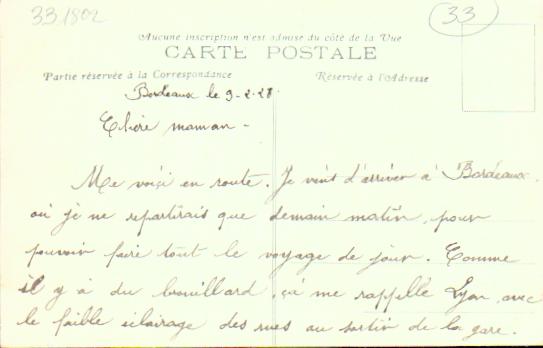 33 1802
33
Aucune inscription n'est admise du côté de la Vue
CARTE POSTALE
Partie réservée à la Correspondance
Réservée à l'Adresse
Bordeaux le 9-2-28
Chère maman -
Me voici en route. Je vient d'arriver à Bordeaux
où je ne repartirais que demain matin, pour
pouvoir faire tout le voyage de jour. Comme
il y à du brouillard, ça me rappelle Lyon, avec
le faible éclairage des rues au sortir de la gare.